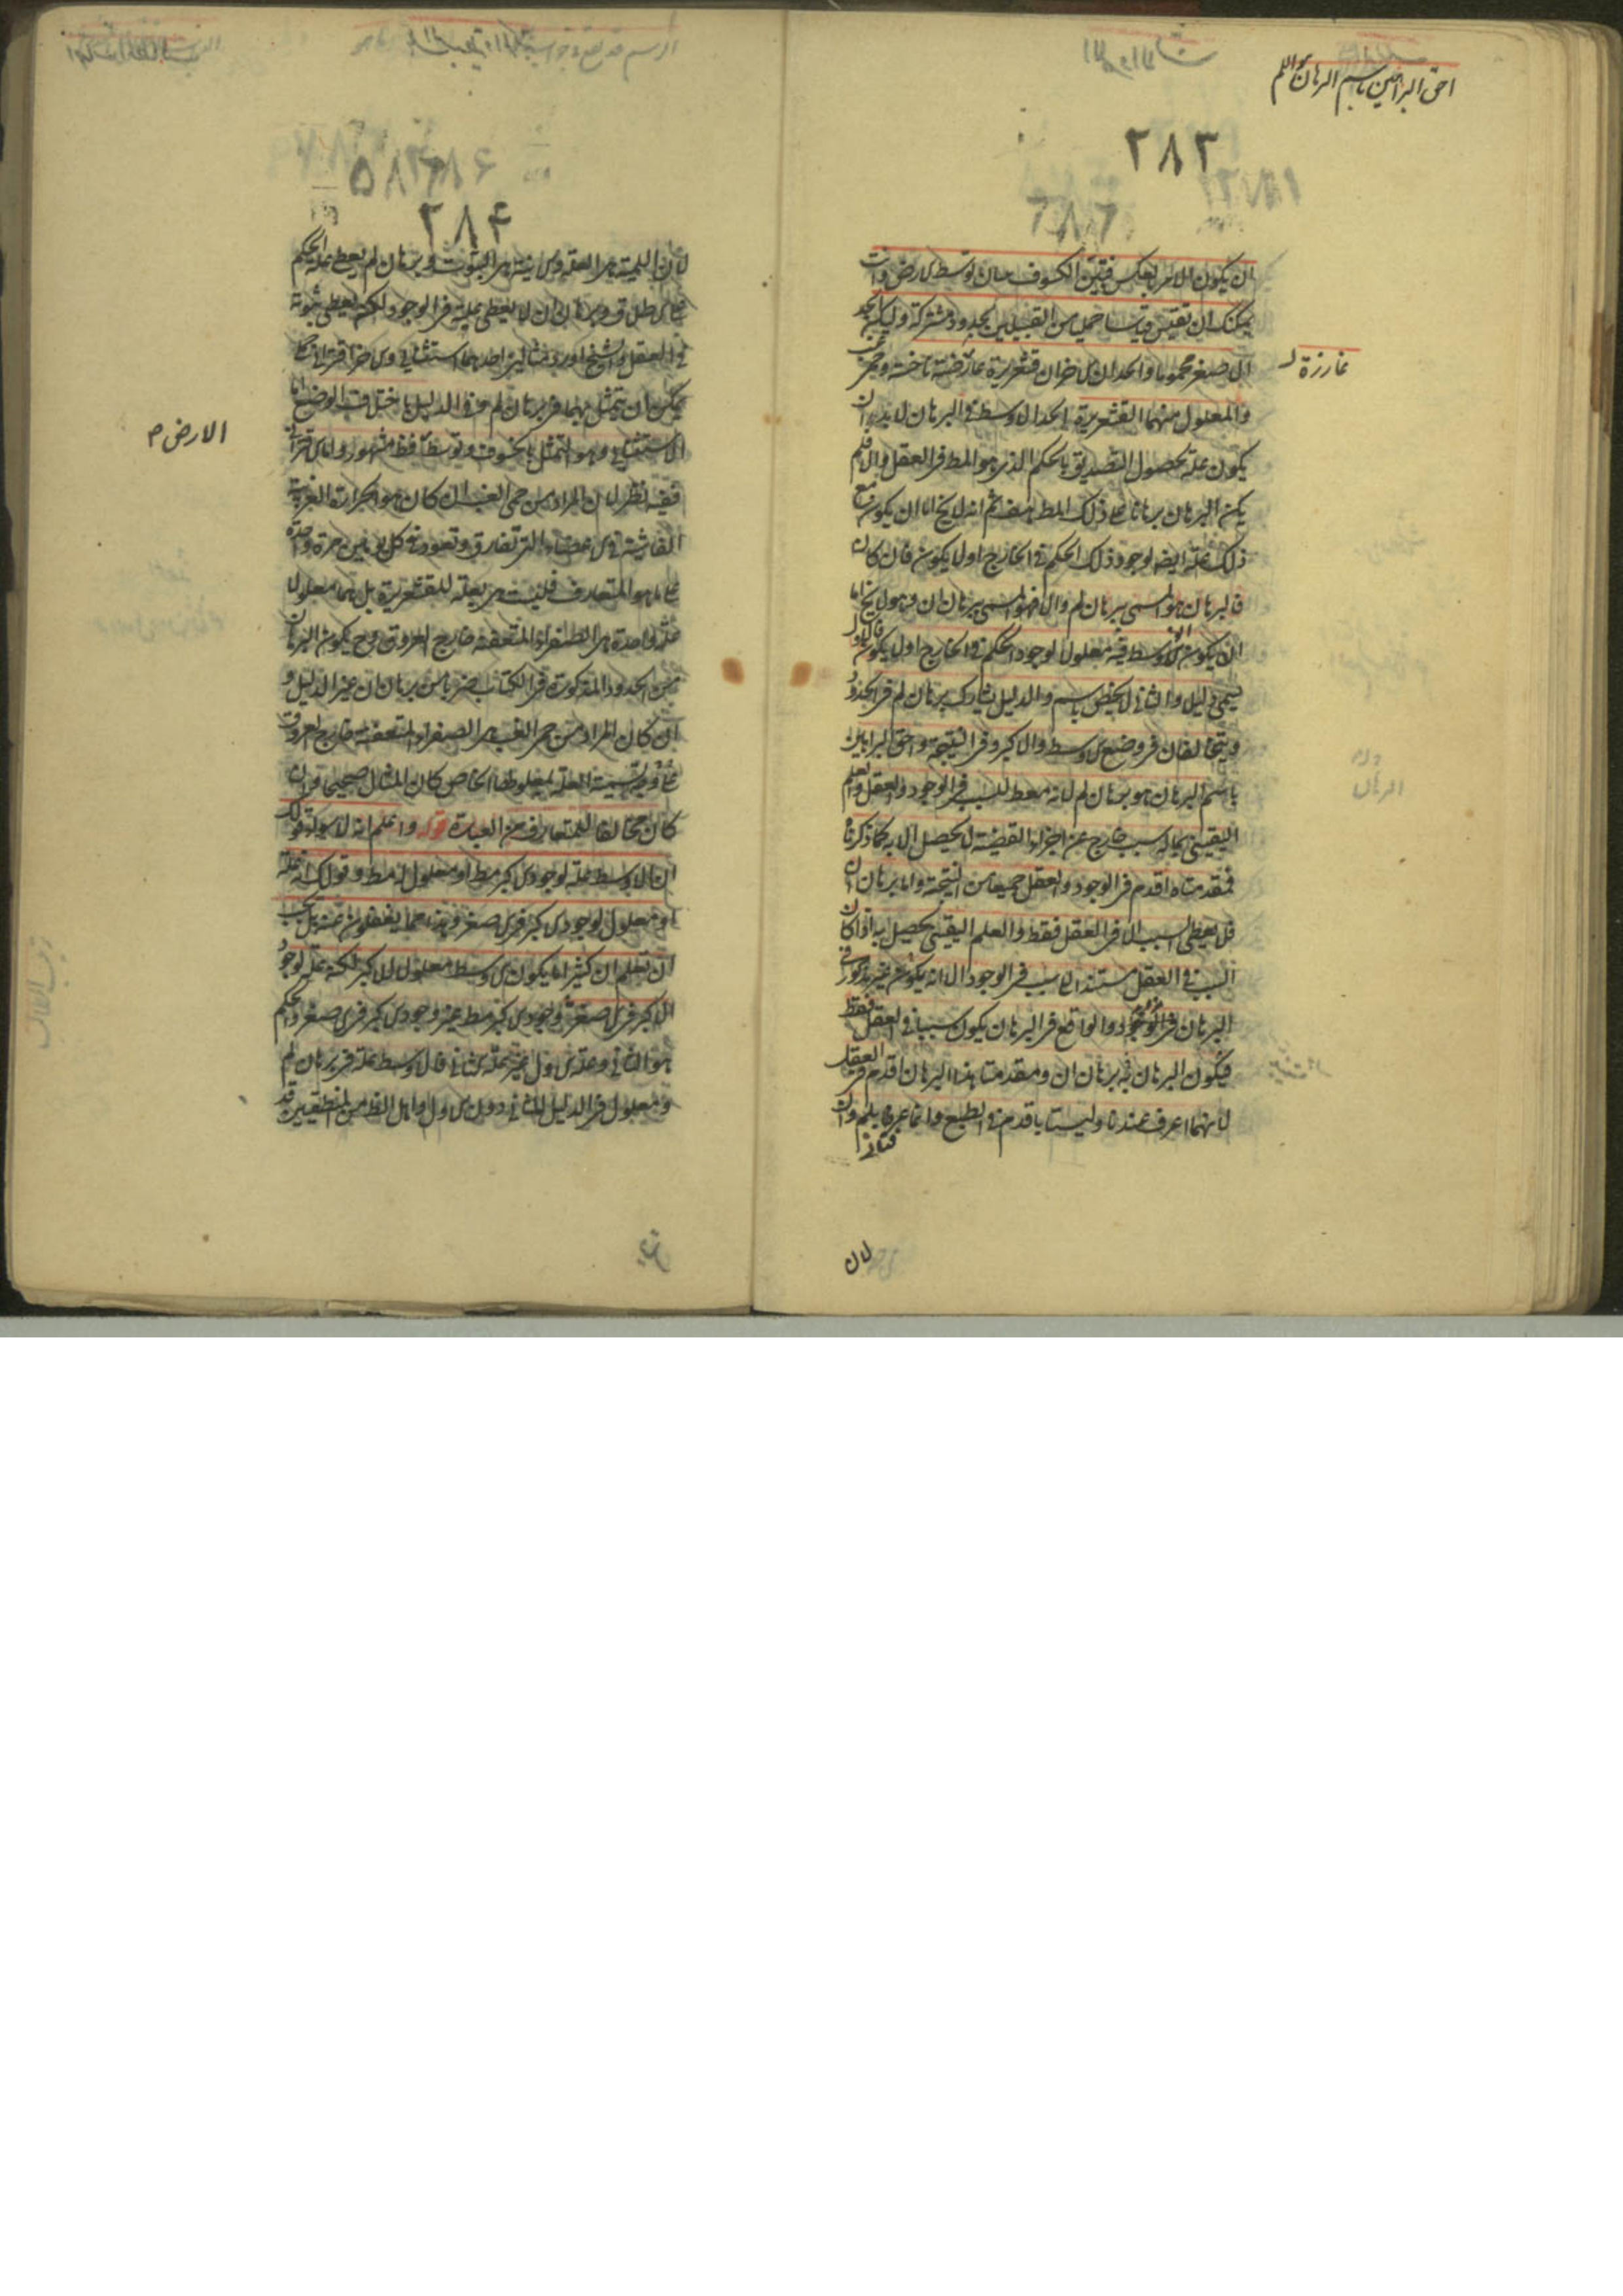 احق البراهين باسم البرهان اللم
٢٨٣
ان يكون الامر بالعكس فيتبين الكسوف ببيان توسط الارض وانت
يمكنك ان تقيس قياسا حمليا من القبيلين بحدود مشتركة وليكن الحد
الاصغر محموما والحدان الاخران قشعريرة غارزة ناخسة وحمى غب
غارزة
والمعلول منهما القشعريرة الحد الاوسط في البرهان لابد وان
يكون علة لحصول التصديق بالحكم الذي هو المط في العقل والا فلم
يكن البرهان برهانا على ذلك المط هف ثم انه لا يخ اما ان يكون مع
ذلك علة ايضا لوجود ذلك الحكم في الخارج او لا يكون فان كان
فالبرهان هو المسمى ببرهان لم والا فهو المسمى ببرهان ان وهو لا يخ اما
ان يكون الاوسط فيه معلولا لوجود الحكم في الخارج او لا يكون فالاول
يسمى دليلا والثاني لا يختص باسم والدليل يشارك برهان لم في الحدود
ويتخالفان في وضع الاوسط والاكبر وفي النتيجة واحق البراهين
باسم البرهان هو برهان لم لانه معط للسبب في الوجود والعقل والعلم
اليقيني بما له سبب خارج عن اجزاء القضية لا يحصل الا به كما ذكرنا
فمقدمتاه اقدم في الوجود والعقل جميعا من النتيجة واما برهان ان
فلا يعطي السبب الا في العقل فقط والعلم اليقيني يحصل به اذا كان
السبب في العقل مستندا الى سبب في الوجود الا انه يكون غير مذكور في
البرهان في الوجود والواقع في البرهان يكون سببا في العقل فقط
فيكون البرهان به برهان ان ومقدمتا هذا البرهان اقدم في العقل
لانهما اعرف عندنا وليستا باقدم في الطبع وانما عرفا بلم وان
لان
٢٨٤
لان اللمية هي العلة والانية هي الثبوت وبرهان لم يعطي علة الحكم
على الاطلاق وبرهان ان لا يعطي علية في الوجود لكنه يعطي ثبوته
في العقل والشيخ اورد مثالين احدهما استثنائي والاخر اقتراني
يمكن ان يتمثل بهما في برهان لم وفي الدليل باختلاف الوضع اما
الاستثنائي وهو التمثل بالخسوف وتوسط فظ مشهور واما الاقتراني
الارض م
ففيه نظر لان المراد من حمى الغب ان كان هو الحرارة الغريبة
الفاشية في الاعضاء التي تفارق وتعود في كل يومين مرة واحدة
على ما هو المتعارف فليست هي بعلة للقشعريرة بل هما معلولا
علة واحدة هي الصفراء المتعفنة خارج العروق وح يكون البرهان
من الحدود المذكورة في الكتاب ضربا من برهان ان غير الدليل و
ان كان المراد من حمى الغب هي الصفراء المتعفنة خارج العروق
كان مخالفا للمتعارف من العبارة قوله واعلم انه لا سواء قولك
ان الاوسط علة لوجود الاكبر مط او معلول له مط وقولك انه علة
او معلول لوجود الاكبر في الاصغر وهذا مما يغفلون عنه بل يجب
ان تعلم ان كثيرا ما يكون الاوسط معلولا للاكبر لكنه علة لوجود
الاكبر في الاصغر وجود الاكبر مط غير وجود الاكبر في الاصغر والحكم
هو الثاني وعلة الاول غير علة الثاني فالاوسط علة في برهان لم
ومعلول في الدليل للثاني دون الاول واهل الظ من المنطقيين قد